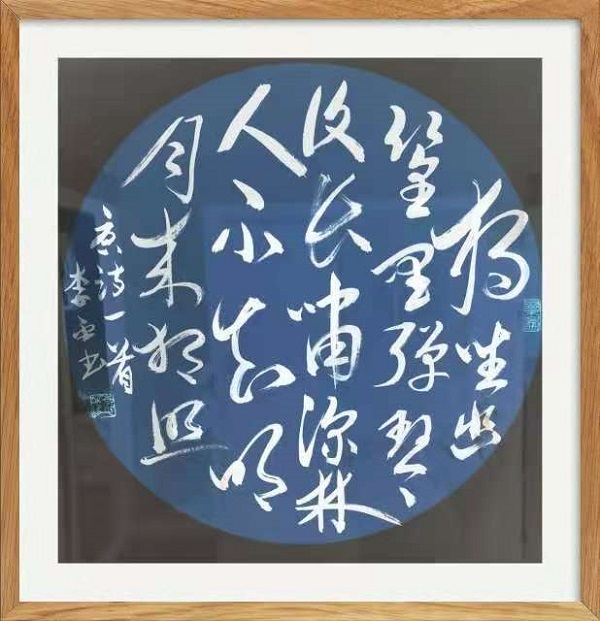 独坐幽
篁里弹琴
复长啸深林
人不知明
月来相照
唐诗一首
李书